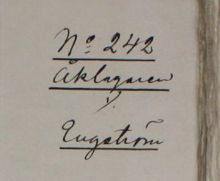 No 242
Åklagaren
v.
Engström